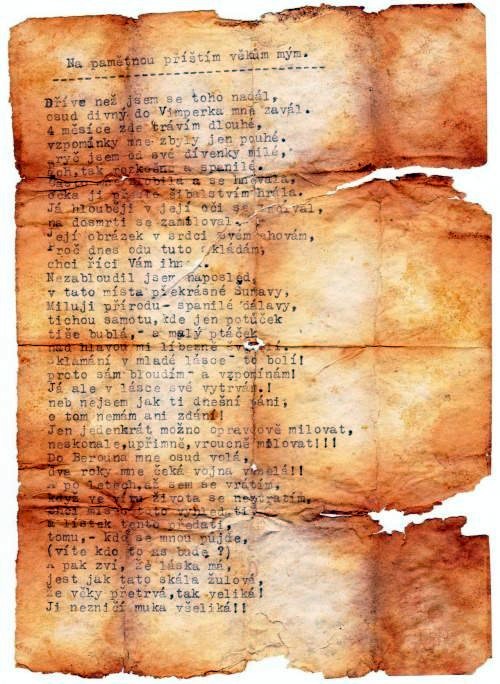 Na pamětnou příštím věkům mým.
Dříve než jsem se toho nadál,
osud divný do Vimperka mně zavál.
4 měsíce zde trávím dlouhé,
vzpomínky mne zbyly jen pouhé.
pryč jsem od své dívenky milé,
ach, tak rozkošné a spanilé.
se hněvala,
očka jí šibalstvím hrála.
Já hlouběji v její oči se
na dosmrti se zamiloval.
Její obrázek v srdci svém chovám,
Proč dnes odu tuto skládám,
chci říci Vám ihn
Nezabloudil jsem naposled
v tato místa překrásné Šumavy,
Miluji přírodu- spanilé dálavy,
tichou samotu, kde jen potůček
tiše bublá,- a malý ptáček
nad hlavou mi líbezně
sklamání v mladé lásce- to bolí!
proto sám bloudím- a vzpomínám!
Já ale v lásce své vytrvám.!
neb nejsem jak ti dnešní páni,
o tom nemám ani zdání!
Jen jedenkrát možno opravdově milovat,
neskonale, upřímně, vroucně milovat!!!
Do Berouna mne osud volá,
dva roky mne čeká vojna veselá!!
A po letech, až sem se vrátím,
když ve víru života se neztratím,
chci místo tuto
a lístek tento předati,
tomu,- kdo se mnou půjde,
(víte kdo to as bude ?)
A pak zví, že láska má,
jest jak tato skála žulová,
že věky přetrvá, tak veliká!
Ji nezničí muka všeliká!!